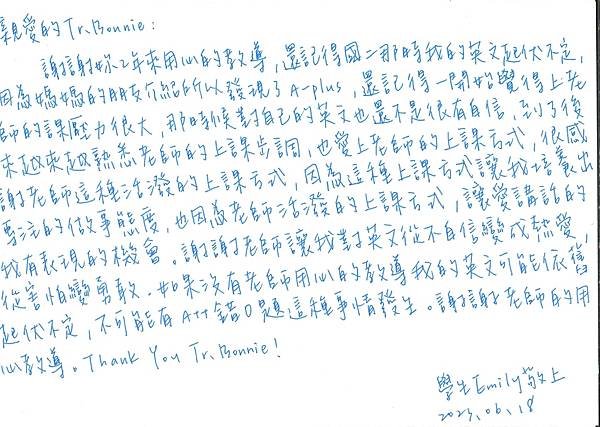 親愛的Tr.Bonnie:
謝謝妳2年來用心的教導,還記得國二那時我的英文起伏不定,
因為媽媽的朋友介紹所以發現了A-plus,還記得一開始覺得上老
師的課壓力很大,那時候對自己的英文也還不是很有自信,到了後
來越來越熟悉老師的上課步調,也愛上老師的上課方式,很感
謝老師這種活潑的上課方式,因為這種上課方式讓我培養出
專注的做事態度,也因為老師活潑的上課方式,讓愛講話的
我有表現的機會。謝謝老師讓我對英文從不自信變成熱愛,
從害怕變勇敢。如果沒有老師用心的教導我的英文可能依舊
起伏不定,不可能有A++錯0題這種事情發生。謝謝老師的用
心教導。Thank You Tr.Bonnie!
學生Emily敬上
2023.06.18